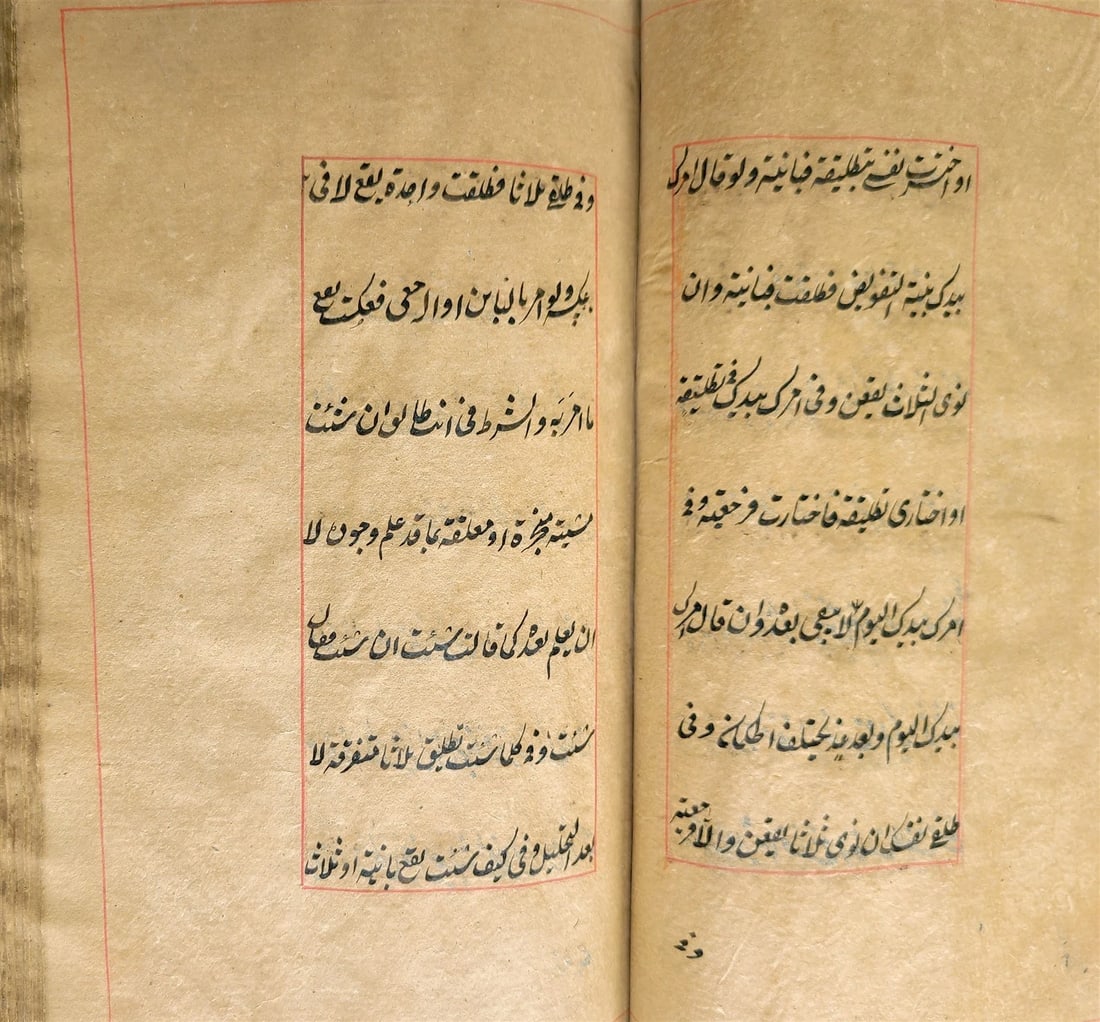 او اخترت نفسى بتطليقة فبانية ولو قال امرك
بيدك بنية التفويض فطلقت فبانية وان
نوى الثلاث يقعن وفى امرك بيدك فى تطليقة
او اختارى تطليقة فاختارت فرجعية وفى
امرك بيدك اليوم لا يبقى بعده وان قال امرك
بيدك اليوم وبعد غد يختلف الحكمان وفى
طلقى نفسك ان نوى ثلاثا يقعن والا فرجعية
وفى
وفى طلقى ثلاثا فطلقت واحدة يقع لا فى
عكسه ولو امر بالباين او الرجعى فعكست يقع
ما امر به والشرط فى انت طالق ان شئت
مشية منجزة او معلقة بما قد علم وجوده لا
ان يعلم بعده كما قالت شئت ان شئت فقال
شئت وفى كلما شئت تطليق ثلاثا متفرقة لا
بعد التحليل وفى كيف شئت يقع بانية او ثلاث